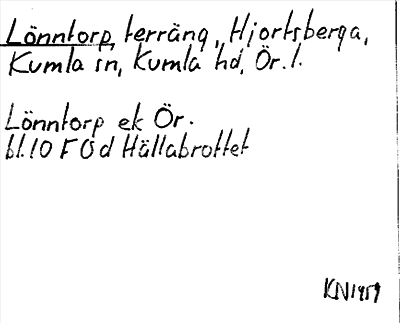 Lönntorp, terräng, Hjortsberga,
Kumla sn, Kumla hd, Ör. l.
Lönntorp ek Ör.
bl. 10 F 0 d Hällabrottet
KN 1959